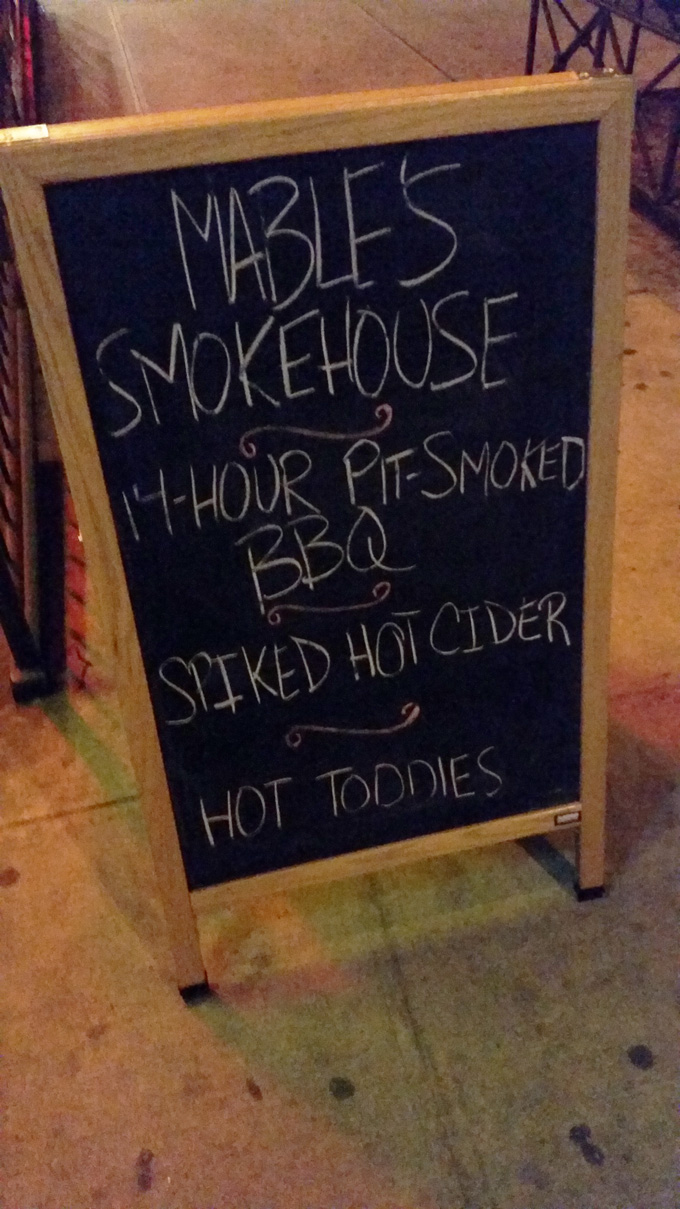 MABLE'S
SMOKEHOUSE
14-HOUR PIT-SMOKED
BBQ
SPIKED HOT CIDER
HOT TODDIES